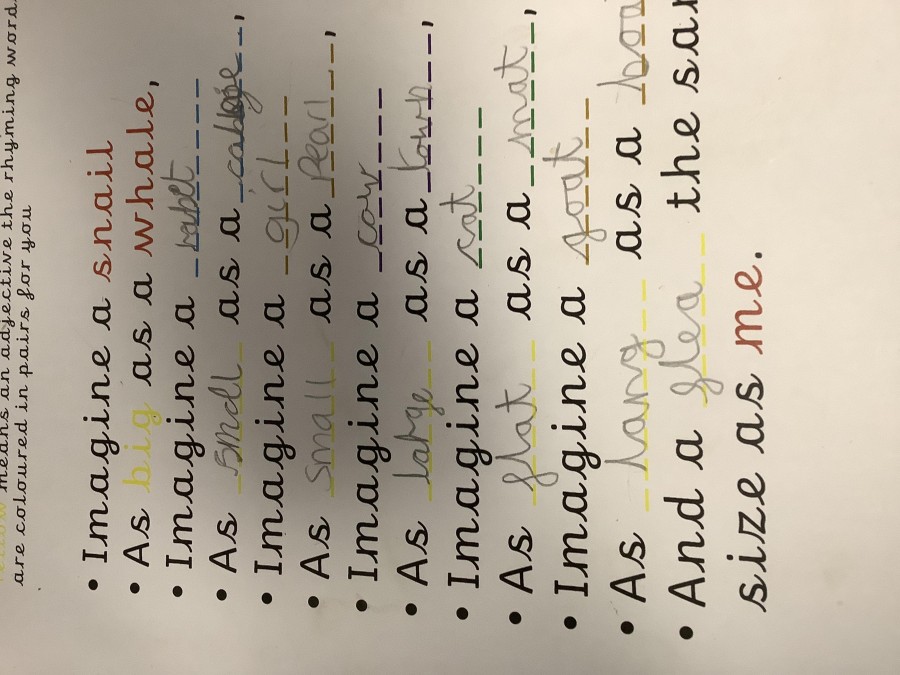 means an adjective the rhyming word
are coloured in pairs for you
• Imagine a snail
• As big as a whale,
• Imagine a
• As small as a cabbge,
• Imagine a girl
• As small as a Pearl,
• Imagine a cow
• As large as a town,
• Imagine a cat
• As flat as a mat,
• Imagine a goat
• As lang as a
• And a flea the
size as me.